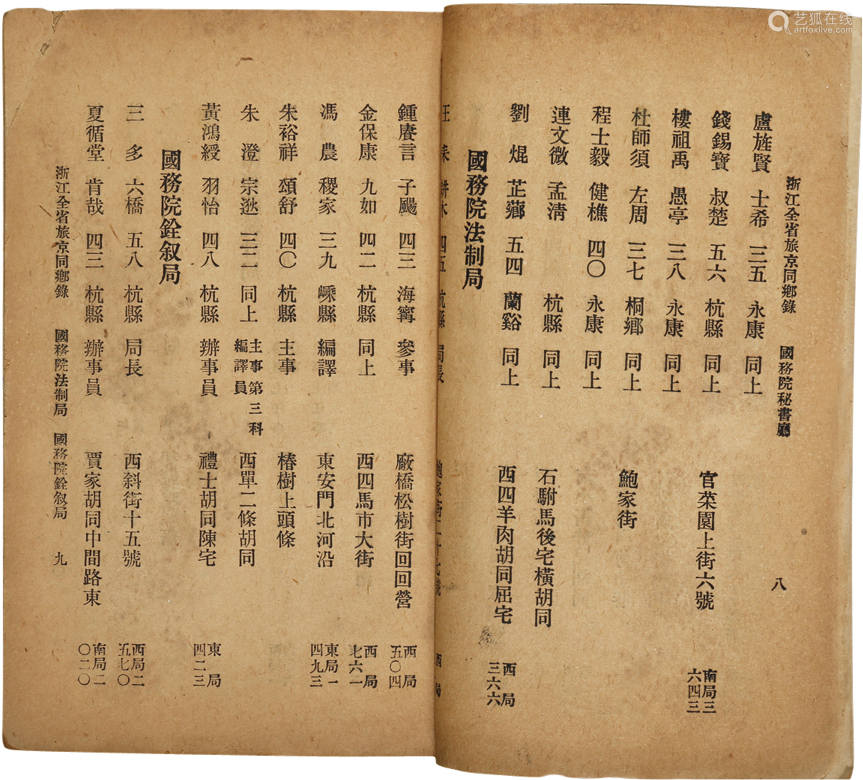 艺狐在线
artfoxlive.com
浙江全省旅京同鄉錄 國務院秘書廳 八
盧旌賢 士希 三五 永康 同上
錢錫寶 叔楚 五六 杭縣 同上 官菜園上街六號 南局三六四三
樓祖禹 愚亭 三八 永康 同上
杜師須 左周 三七 桐鄉 同上 鮑家街
程士毅 健樵 四〇 永康 同上
連文澂 孟淸 杭縣 同上 石駙馬後宅橫胡同
劉焜 芷薌 五四 蘭谿 同上 西四羊肉胡同屈宅 西局三六六
國務院法制局
四五 杭縣 局長
鍾賡言 子颺 四三 海寗 參事 廠橋松樹街回回營 西局五〇四
金保康 九如 四二 杭縣 同上 西四馬市大街 西局七六一
馮農 稷家 三九 嵊縣 編譯 東安門北河沿 東局一四九三
朱裕祥 頌舒 四〇 杭縣 主事 椿樹上頭條
朱澄 宗逖 三二 同上 主事第三科編譯員 西單二條胡同
黃鴻綬 羽怡 四八 杭縣 辦事員 禮士胡同陳宅 東局四二三
國務院銓叙局
三多 六橋 五八 杭縣 局長 西斜街十五號 西局二五七〇
夏循堂 肯哉 四三 杭縣 辦事員 賈家胡同中間路東 南局二〇二〇
浙江全省旅京同鄉錄 國務院法制局 國務院銓叙局 九